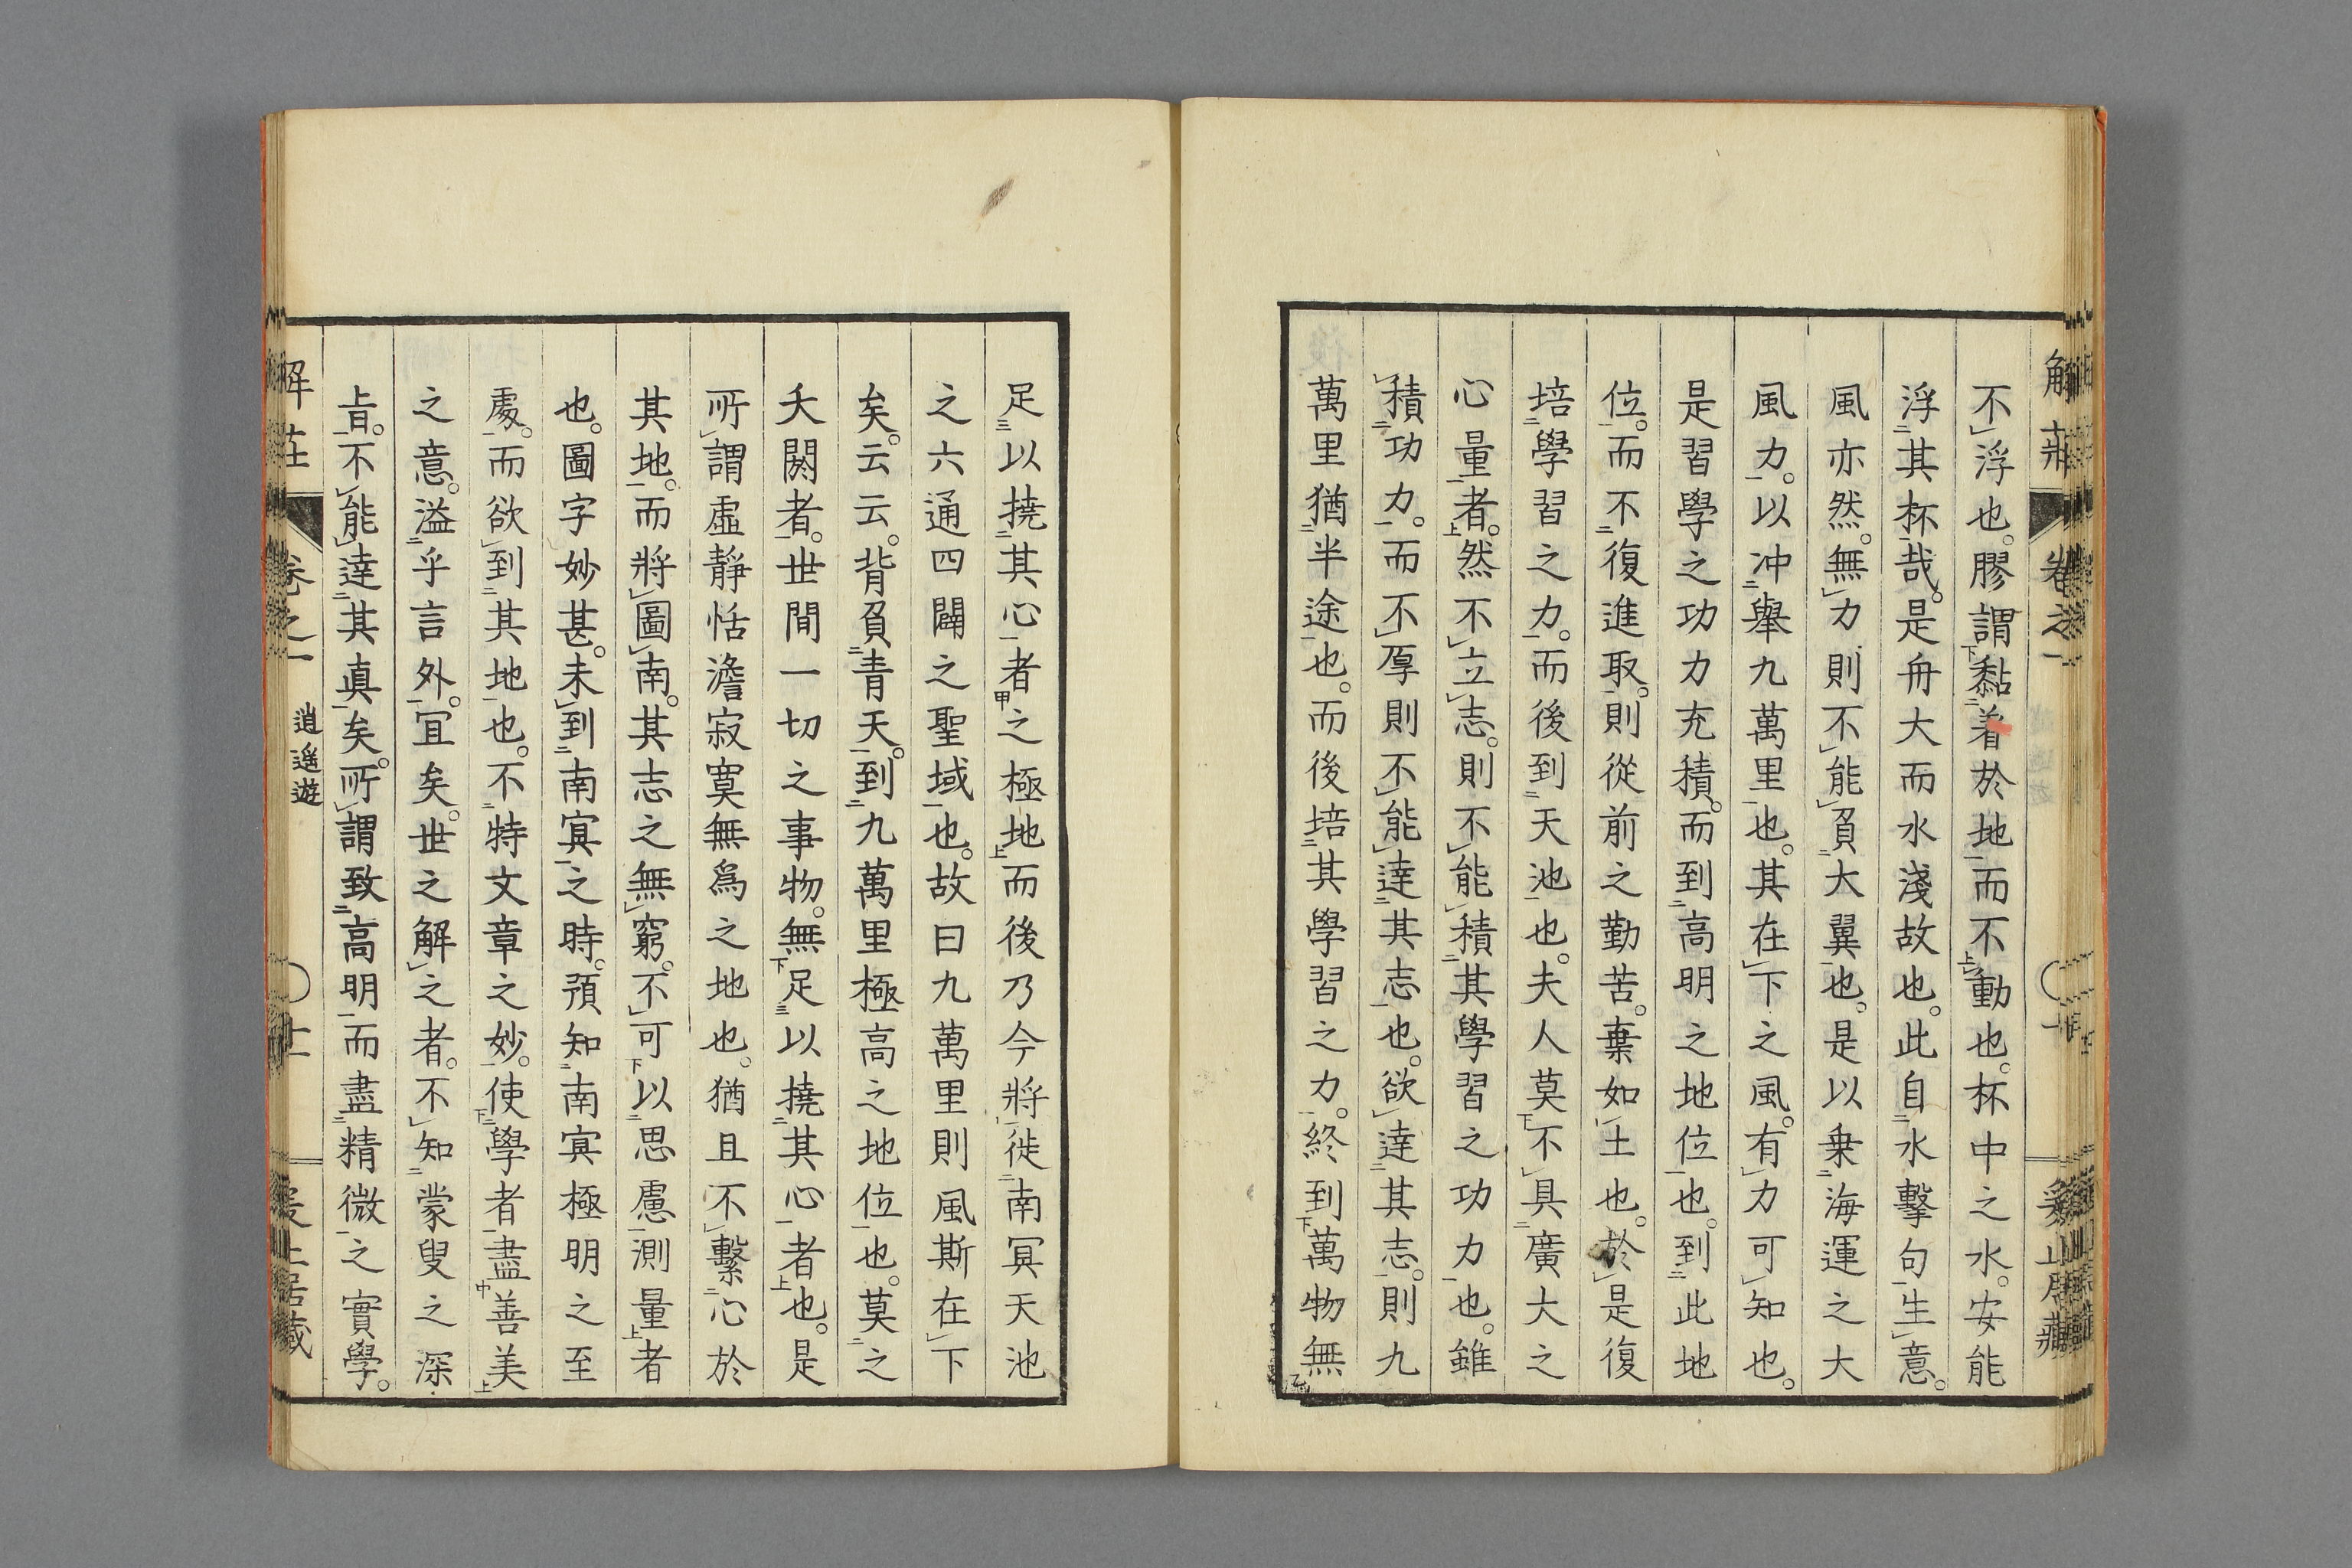 不浮也。膠謂黏着於地而不動也。杯中之水。安能
浮其杯哉。是舟大而水淺故也。此自水擊句生意。
風亦然。無力則不能負大翼也。是以乗海運之大
風力。以冲舉九萬里也。其在下之風。有力可知也。
是習學之功力充積。而到高明之地位也。到此地
位。而不復進取。則從前之勤苦。棄如土也。於是復
培學習之力。而後到天池也。夫人莫不具廣大之
心量者。然不立志。則不能積其學習之功力也。雖
積功力。而不厚則不能達其志也。欲達其志。則九
萬里猶半途也。而後培其學習之力。終到萬物無
足以撓其心者之極地而後乃今將徙南冥天池
之六通四闢之聖域也。故曰九萬里則風斯在下
矣。云云。背負青天。到九萬里極高之地位也。莫之
夭閼者。世間一切之事物。無足以撓其心者也。是
所謂虛靜恬澹寂寞無爲之地也。猶且不繫心於
其地。而將圖南。其志之無窮。不可以思慮測量者
也。圖字妙甚。未到南冥之時。預知南冥極明之至
處。而欲到其地也。不特文章之妙。使學者盡善美
之意。溢乎言外。宜矣。世之解之者。不知蒙叟之深
旨。不能達其眞矣。所謂致高明而盡精微之實學。
解莊 卷之一 逍遙遊